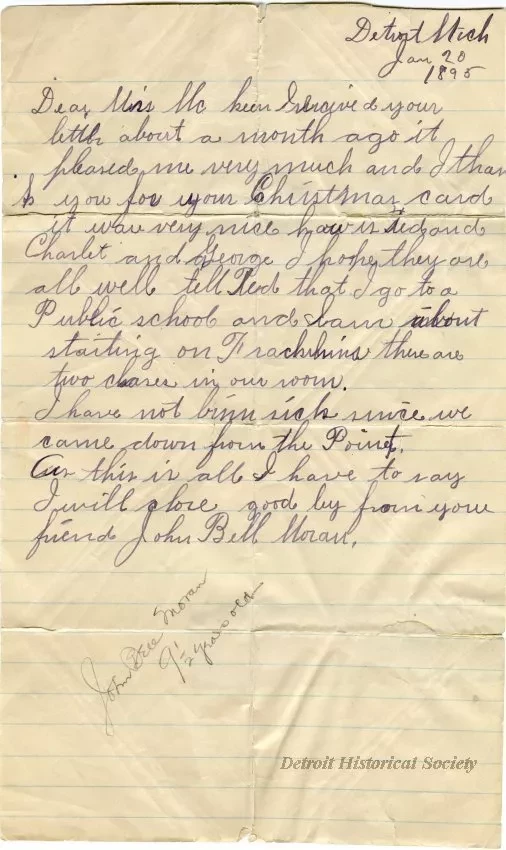 Detroit Mich
Jan 20
1895
Dear Mrs Mc keen I recived your
letter about a month ago it
pleased me very much and I than
k you for your Christmas card
it was very nice how is Ted and
Charlet and George I hope they are
all well tell Ted that I go to a
Public school and I am about
starting on Frachshins there are
two clases in our room.
I have not binn sick since we
came down from the Point.
As this is all I have to say
I will close good by from your
friend John Bell Moran.
John Bell Moran
9 1/2 years old
Detroit Historical Society